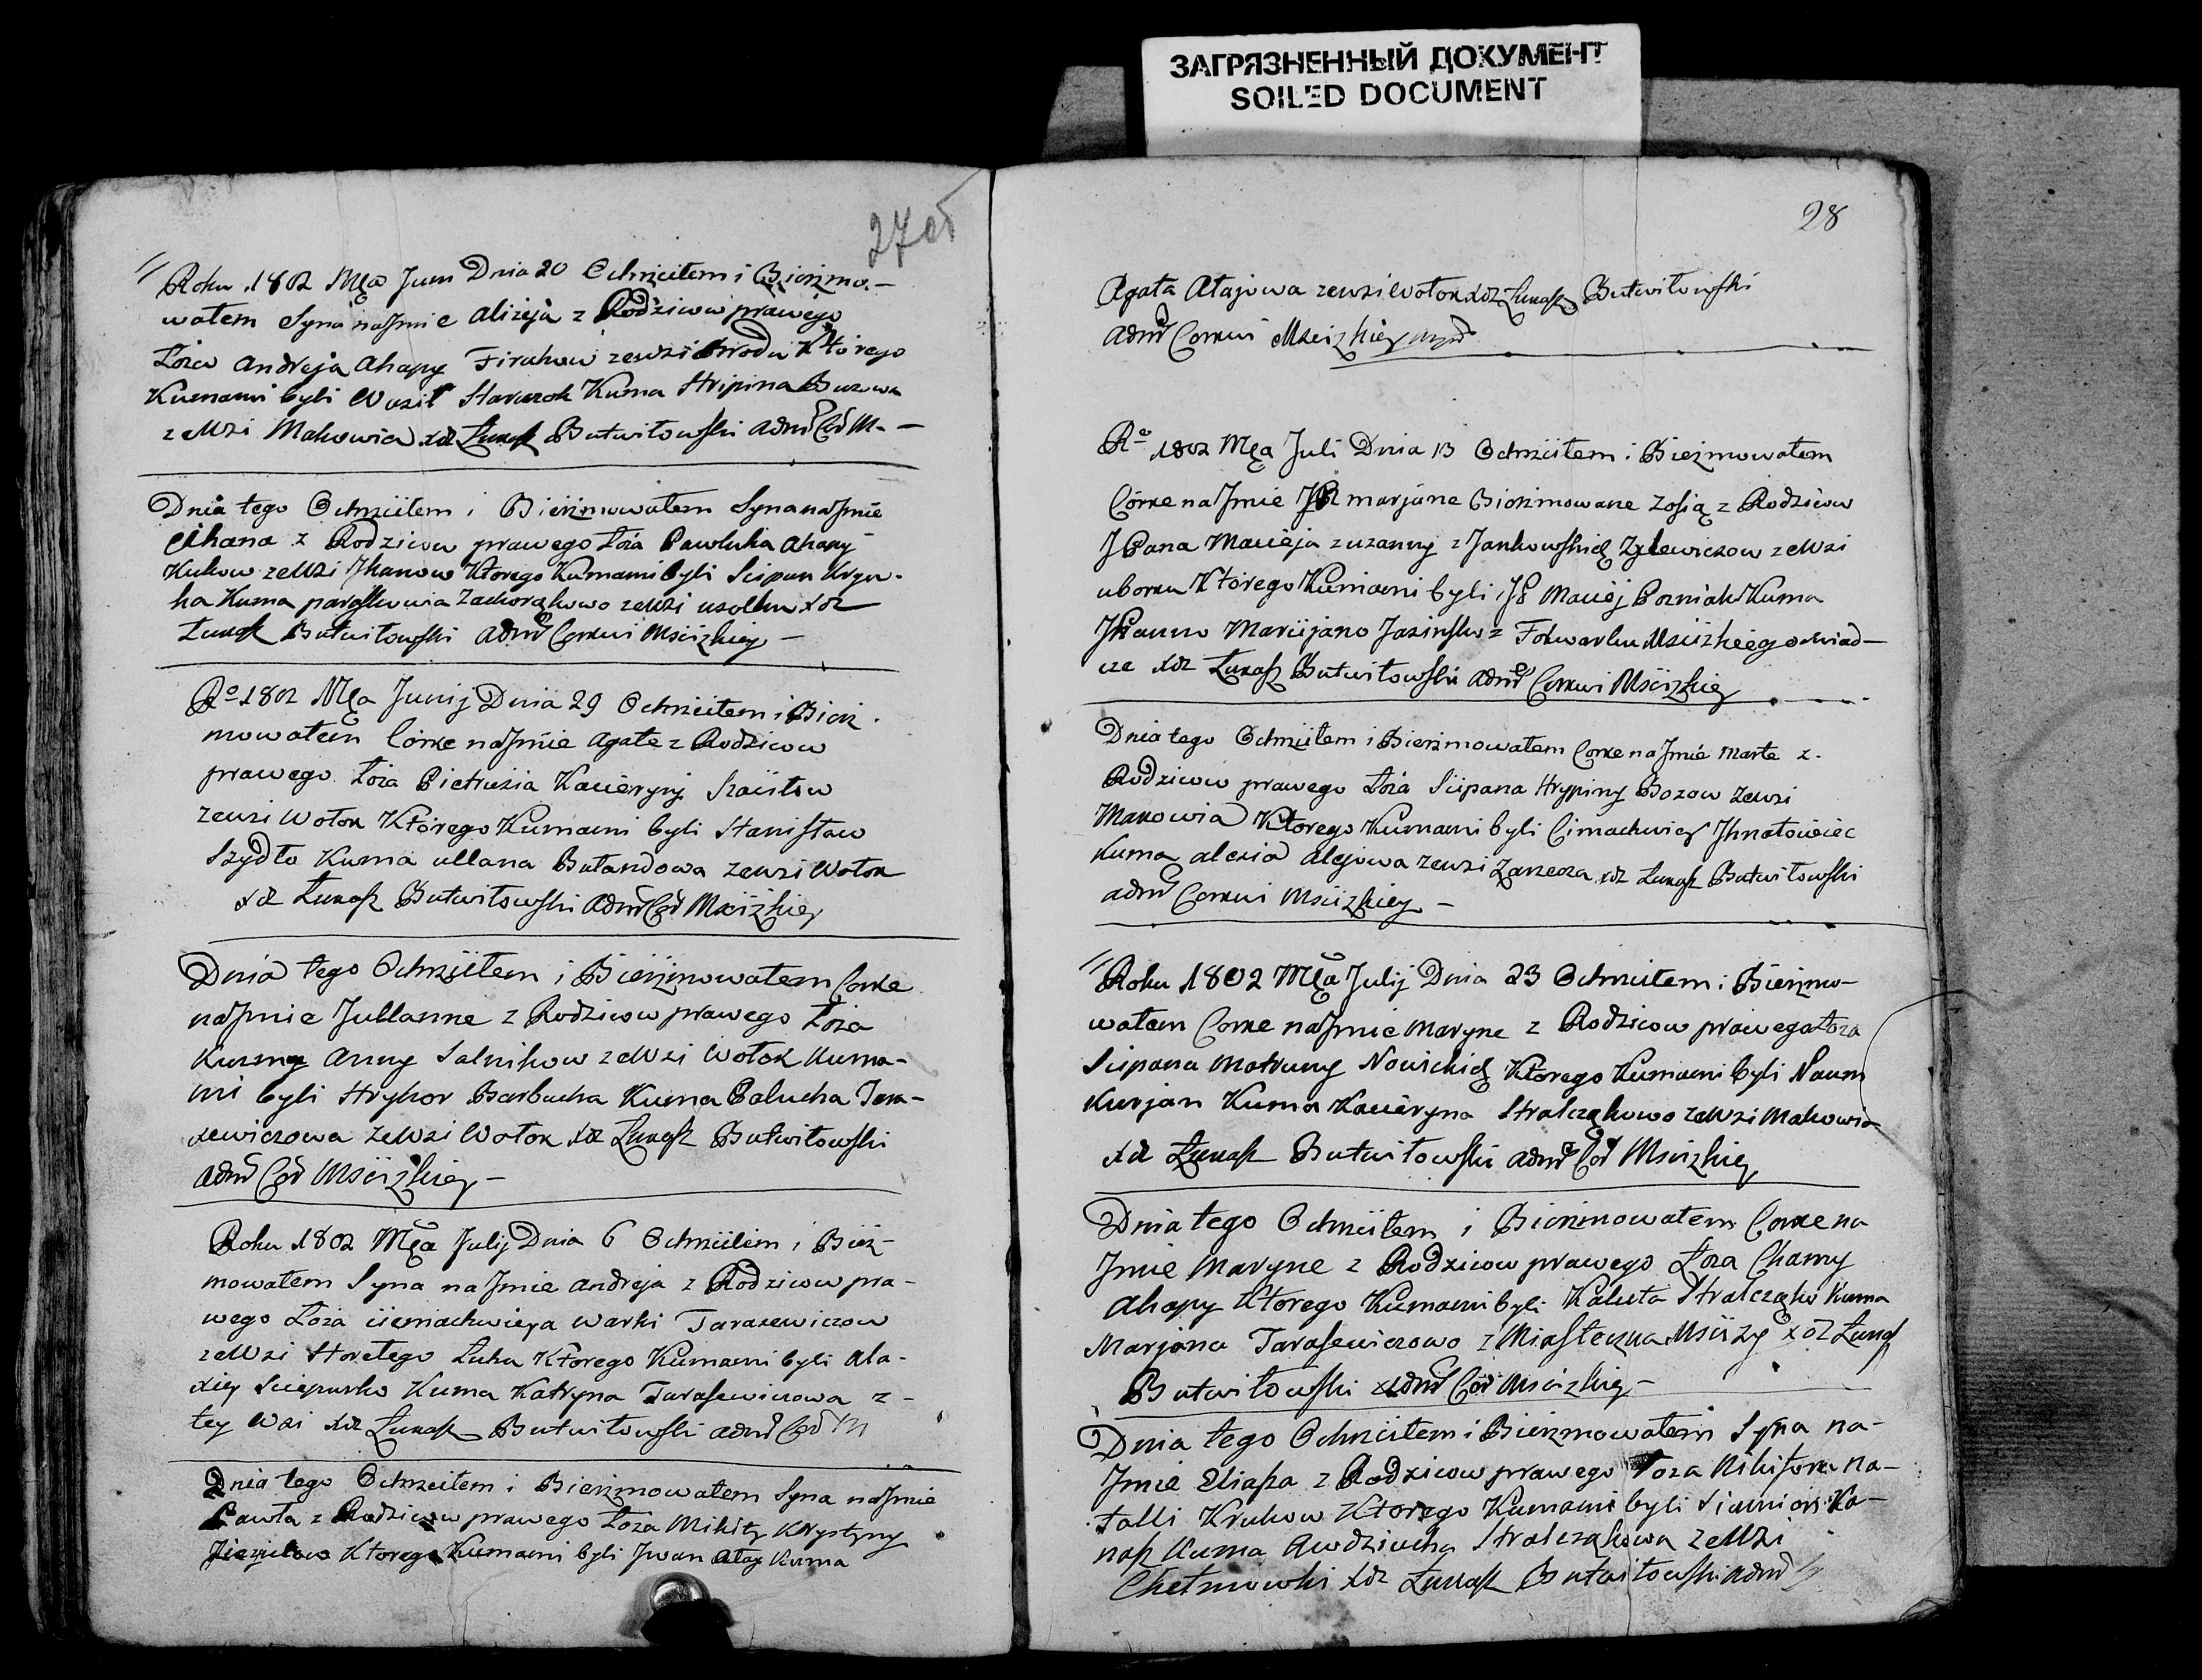 ЗАГРЯЗНЕННЫЙ ДОКУМЕНТ
SOILED DOCUMENT
27об
Roku 1802 Mca Juni Dnia 20 Ochrzcilem i Bierzmo-
wałem Syna na Jmie Alizeja z Rodzicow prawego
Łoża Andreja Ahapy Firahow ze wsi Brodu Ktorego
Kumami byli Wasil Kuma Hripina
ze Wsi Makowia xdz Łukasz Butwiłowski adm Cer M-
Dnia tego Ochrzciłem i Bierzmowałem Syna na Jmie
z Rodzicow prawego Łoża Pawluka Ahapy
Kukow ze Wsi Jkanow Ktorego Kumami byli Scipan Kryw-
ha Kuma paraskowia ze Wsi xdz
Łukasz Butwiłowski adm Cerkwi Mscizkiey -
Ro 1802 Mca Junij Dnia 29 Ochrzciłem i Bierz-
mowałem Corke na Jmie Agate z Rodzicow
prawego Łoża Pietrusia Kacieryny
ze wsi Wołok Którego Kumami byli Stanisław
Szydło Kuma ullana Bułandowa ze wsi Wołok
xdz Łukasz Butwiłowski Adm Cer Mscizkiey
Dnia tego Ochrzciłem i Bierzmowałem Corke
na Jmie Jullanne z Rodzicow prawego Łoża
Kuzmy Anny Salnikow ze Wsi Wołok Kuma-
mi byli Hryhor Barbucha Kuma Palucha Tara-
sewiczowa ze Wsi Wołok xdz Łukasz Butwiłowski
Adm Cer Mscizkiey -
Roku 1802 Mca Julij Dnia 6 Ochrzciłem i Bierz-
mowałem Syna na Jmie Andreja z Rodzicow pra-
wego Łoża Warki Tarasewiczow
ze Wsi Horełego Łuhu Którego Kumami byli Ała-
xiey Kuma Katryna Tarasewiczowa z -
tey Wsi xdz Łukasz Butwiłowski adm Cer M
Dnia tego Ochrzciłem i Bierzmowałem Syna na Jmie
Pawła z Rodzicow prawego Łoża Mikity Krystyny
Ktorego Kumami byli Jwan Ałay Kuma
28
Agata Ałajowa ze wsi Wołok xdz Łukasz Butwiłowski
Adm Cerkwi Mscizkiey
Ro 1802 Mca Juli Dnia 13 Ochrzciłem i Bierzmowałem
Córke na Jmie marjane Bierzmowane Zosią z Rodzicow
JPana Macieja zuzanny z Jankowskich Zylewiczow ze Wsi
uborku Którego Kumami byli JP Maciej Pozniak Kuma
JPanna Marijana Jasinska z Folwarku Mscizkiego
xdz Łukasz Butwiłowski adm Cerkwi Mscizkiey
Dnia tego Ochrzciłem i Bierzmowałem Corke na Jmie Marte z -
Rodzicow prawego Łoża Scipana Hrypiny Bozow ze wsi
Makowia Ktorego Kumami byli Cimachwiey
Kuma alexia alejowa ze wsi Zarzecza xdz Łukasz Butwiłowski
adm Cerkwi Mscizkiey -
Roku 1802 Mca Julij Dnia 23 Ochrzciłem i Bierzmo-
wałem Corke na Jmie Maryne z Rodzicow prawego Łoża
Scipana Matruny Nowickich Ktorego Kumami byli Naum
Kurjan Kuma Kacieryna Stralcząkowa ze Wsi Makowia
xdz Łukasz Butwiłowski adm Cer Mscizkiey
Dnia tego Ochrzciłem i Bierzmowałem Corke na
Jmie Maryne z Rodzicow prawego Łoża Chamy
Ahapy Ktorego Kumami byli Kaluta Stralcząk Kuma
Marjana Tarasewiczowa z Miasteczka Mscizy xdz Łukasz
Butwiłowski adm Cer Mscizkiey -
Dnia tego Ochrzciłem i Bierzmowałem Syna na-
Jmie Eliasza z Rodzicow prawego Łoża Nikifora Na-
talli Krukow Ktorego Kumami byli
Kuma Awdziucha Stralczakowa ze Wsi
Chełmowki xdz Łukasz Butwiłowski adm